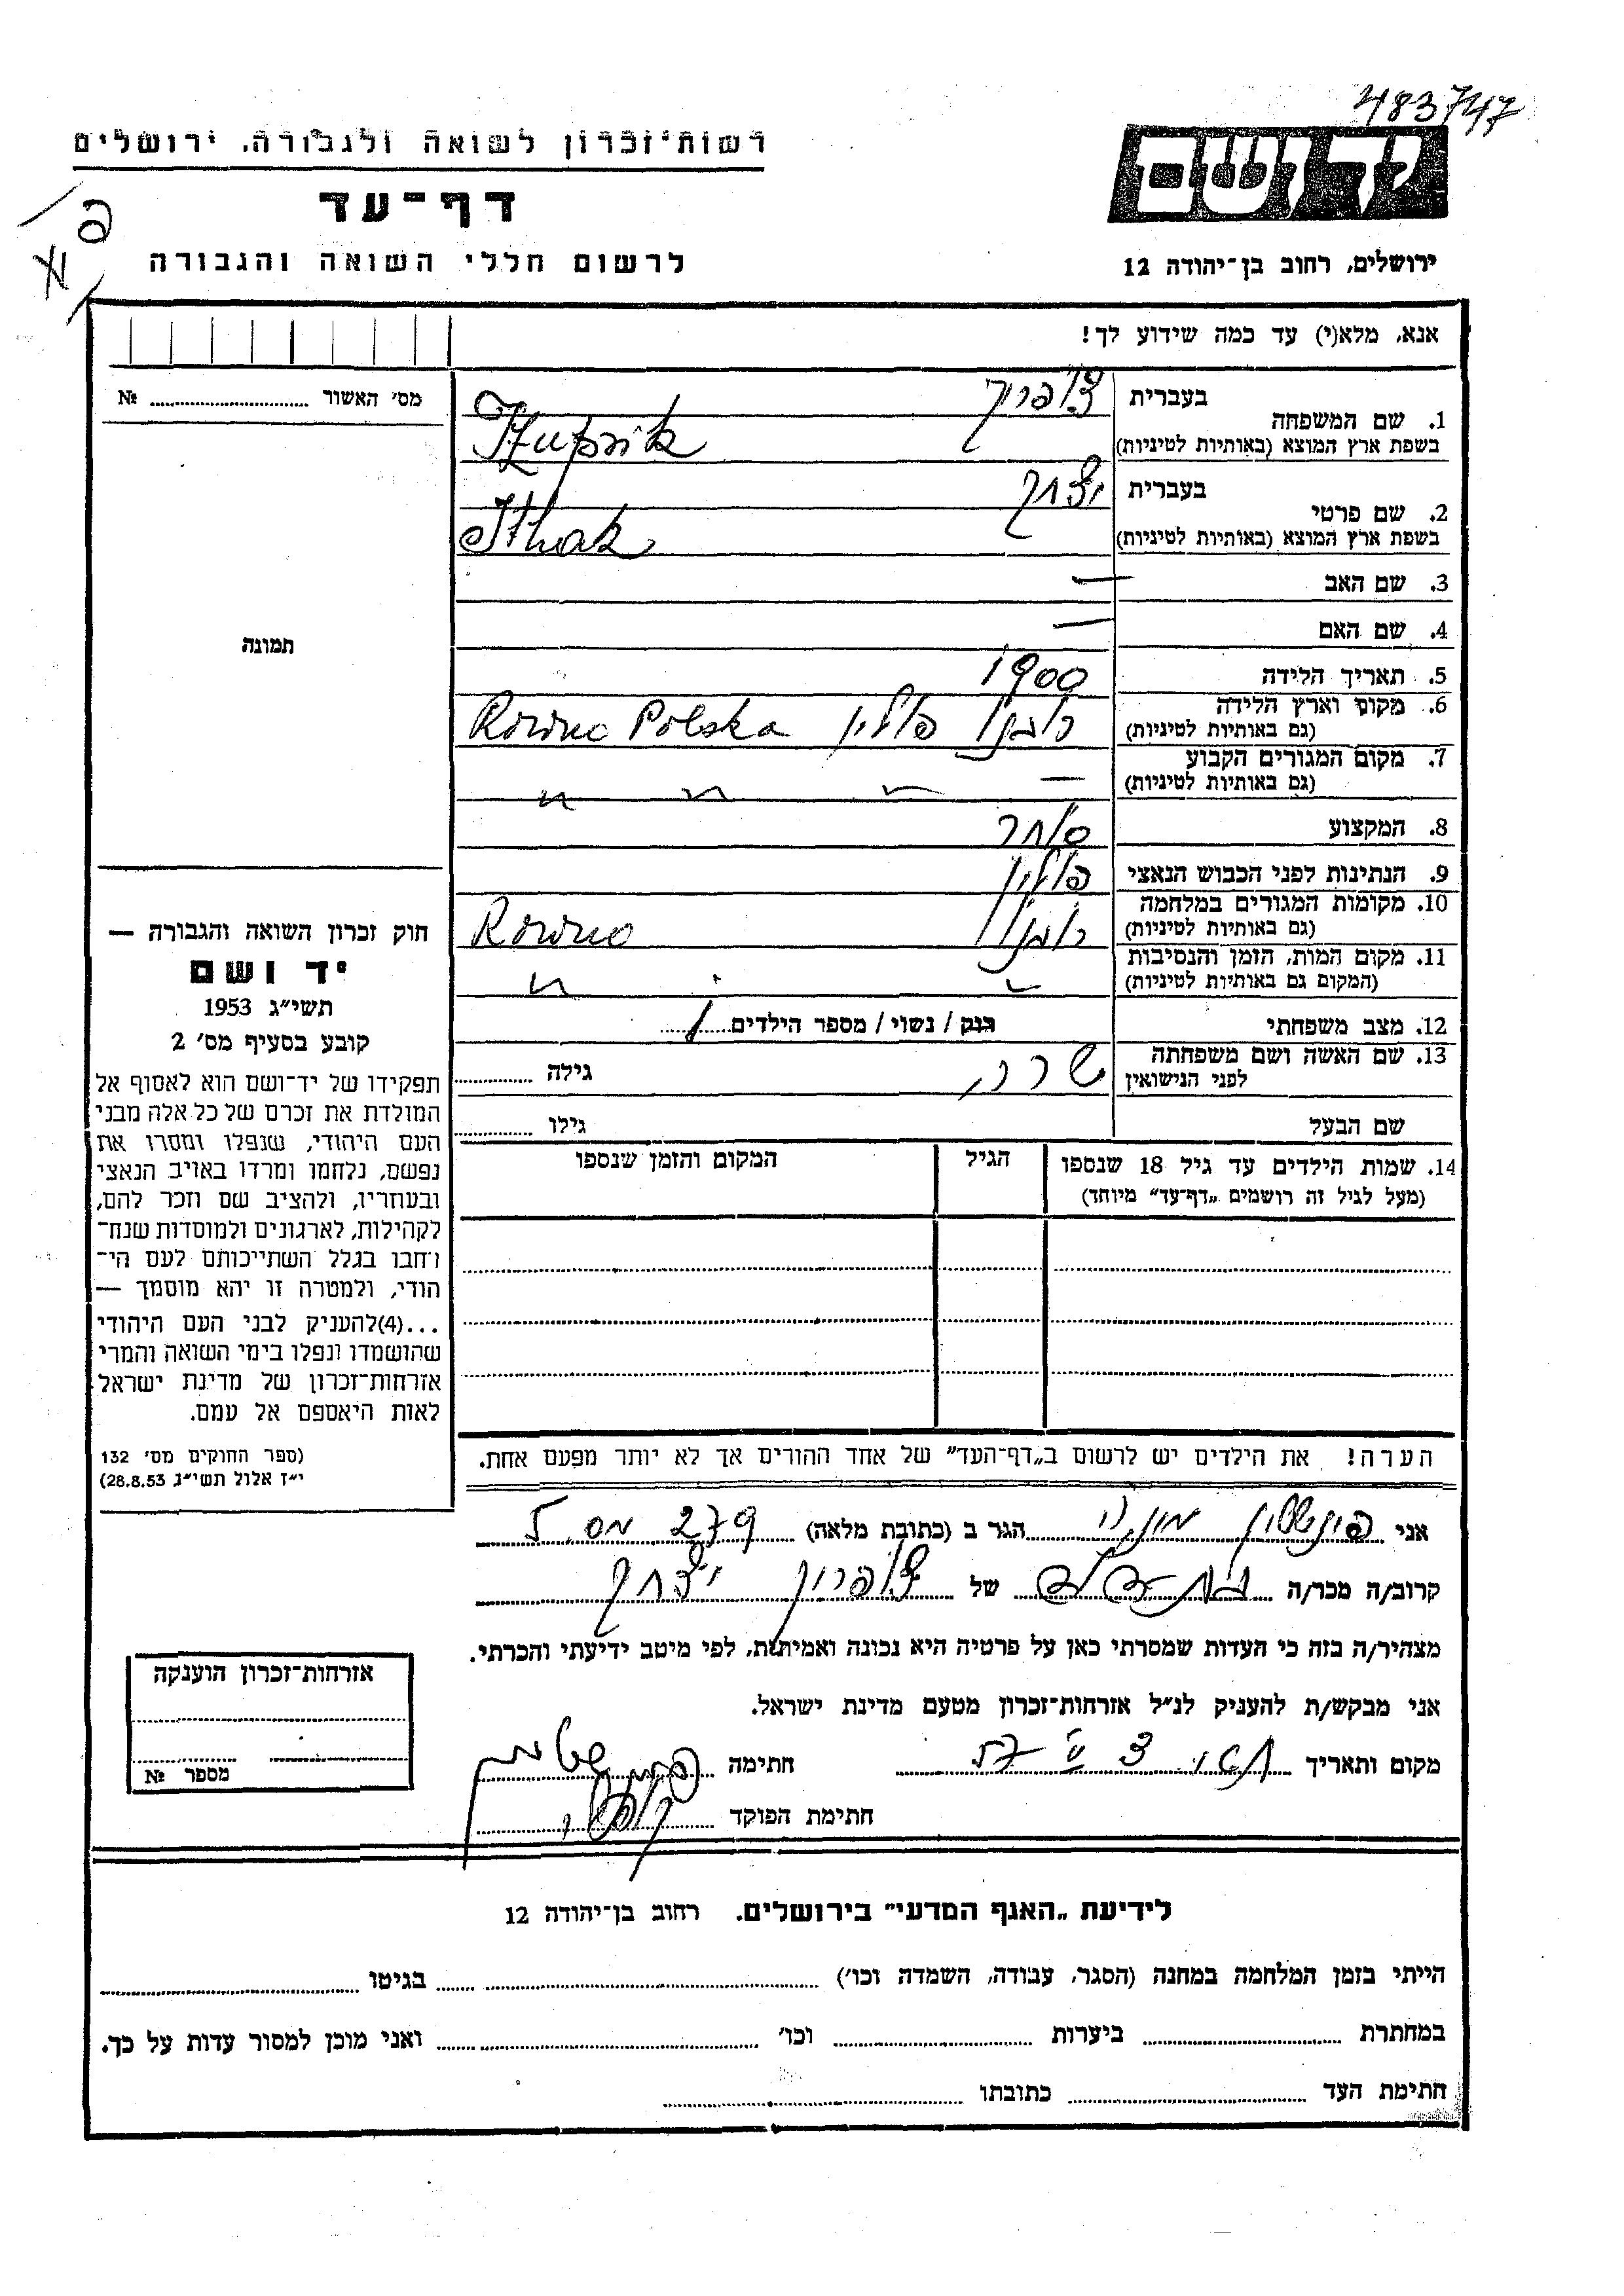 483747
רשות־זכרון לשואה ולגבורה, ירושלים
יד ושם
דף־עד
פ
לרשום חללי השואה והגבורה
ירושלים, רחוב בן־יהודה 12
אנא, מלא(י) עד כמה שידוע לך!
מס׳ האשור № 
תמונה
1. שם המשפחה
בעברית צופניק
בשפת ארץ המוצא (באותיות לטיניות)
2. שם פרטי
בעברית יצחק
בשפת ארץ המוצא (באותיות לטיניות) Ithak
3. שם האב —
4. שם האם —
5. תאריך הלידה 1900
6. מקום וארץ הלידה רובנו פולין Rowno Polska
(גם באותיות לטיניות)
7. מקום המגורים הקבוע
(גם באותיות לטיניות)
8. המקצוע סוחר
9. הנתינות לפני הכבוש הנאצי פולין
10. מקומות המגורים במלחמה רובנו Rowno
(גם באותיות לטיניות)
11. מקום המות, הזמן והנסיבות
(המקום גם באותיות לטיניות)
12. מצב משפחתי רווק / נשוי / מספר הילדים 1
13. שם האשה ושם משפחתה שרה גילה
לפני הנישואין
שם הבעל גילו
14. שמות הילדים עד גיל 18 שנספו הגיל המקום והזמן שנספו
(מעל לגיל זה רושמים „דף־עד” מיוחד)
הערה! את הילדים יש לרשום ב„דף־העד” של אחד ההורים אך לא יותר מפעם אחת.
חוק זכרון השואה והגבורה —
יד ושם
תשי״ג 1953
קובע בסעיף מס׳ 2
תפקידו של יד־ושם הוא לאסוף אל
המולדת את זכרם של כל אלה מבני
העם היהודי, שנפלו ומסרו את
נפשם, נלחמו ומרדו באויב הנאצי
ובעוזריו, ולהציב שם וזכר להם,
לקהילות, לארגונים ולמוסדות שנח־
רבו בגלל השתייכותם לעם הי־
הודי, ולמטרה זו יהא מוסמך —
...(4)להעניק לבני העם היהודי
שהושמדו ונפלו בימי השואה והמרי
אזרחות־זכרון של מדינת ישראל
לאות היאספם אל עמם.
(ספר החוקים מס׳ 132
י״ז אלול תשי״ג 28.8.53)
אני הגר ב (כתובת מלאה) 279
קרוב/ה מכר/ה של יצחק
מצהיר/ה בזה כי העדות שמסרתי כאן על פרטיה היא נכונה ואמיתית, לפי מיטב ידיעתי והכרתי.
אני מבקש/ת להעניק לנ״ל אזרחות־זכרון מטעם מדינת ישראל.
מקום ותאריך חתימה
חתימת הפוקד
אזרחות־זכרון הוענקה
מספר №
לידיעת „האגף המדעי” בירושלים. רחוב בן־יהודה 12
הייתי בזמן המלחמה במחנה (הסגר, עבודה, השמדה וכו׳) בגיטו
במחתרת ביערות וכו׳ ואני מוכן למסור עדות על כך.
חתימת העד כתובתו